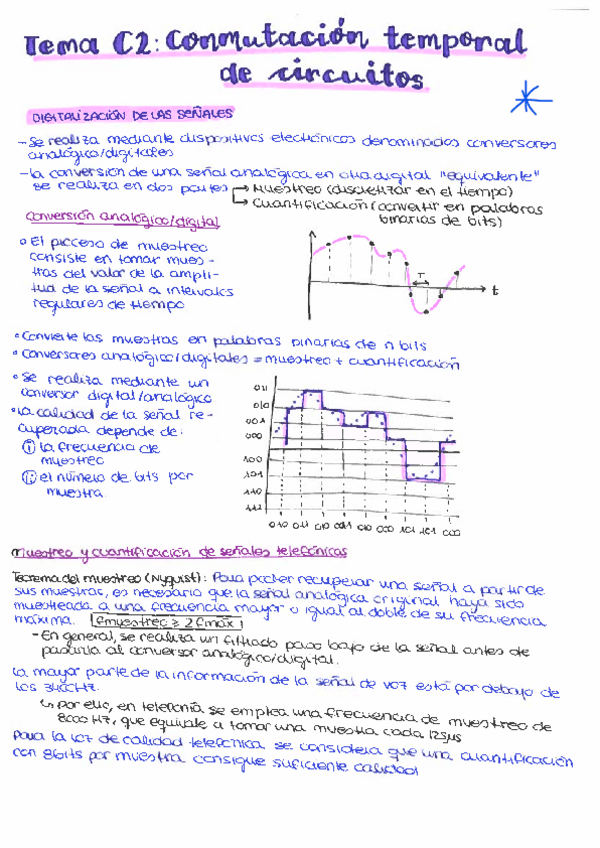 Tema C2: Conmutación temporal
de circuitos
DIGITALIZACIÓN DE LAS SEÑALES
- Se realiza mediante dispositivos electrónicos denominados conversores
analógico/digitales
- La conversión de una señal analógica en otra digital "equivalente"
se realiza en dos partes → Muestreo (discretizar en el tiempo)
→ Cuantificación (convertir en palabras
binarias de bits)
Conversión analógico/digital
• El proceso de muestreo
consiste en tomar mues-
tras del valor de la ampli-
tud de la señal a intervalos
regulares de tiempo
T
t
• Convierte las muestras en palabras binarias de n bits
• Conversores analógico/digitales = muestreo + cuantificación
• Se realiza mediante un
conversor digital/analógico
• La calidad de la señal re-
cuperada depende de:
① La frecuencia de
muestreo
② el número de bits por
muestra
011
010
001
000
100
101
110
111
010 011 010 001 010 000 101 101 000
Muestreo y cuantificación de señales telefónicas
Teorema del muestreo (Nyquist): Para poder recuperar una señal a partir de
sus muestras, es necesario que la señal analógica original haya sido
muestreada a una frecuencia mayor o igual al doble de su frecuencia
máxima. fmuestreo ≥ 2 fmáx
- En general, se realiza un filtrado paso bajo de la señal antes de
pasarla al conversor analógico/digital.
La mayor parte de la información de la señal de voz está por debajo de
los 3400Hz.
↳ por ello, en telefonía se emplea una frecuencia de muestreo de
8000 Hz, que equivale a tomar una muestra cada 125μs
Para la voz de calidad telefónica se considera que una cuantificación
con 8bits por muestra consigue suficiente calidad